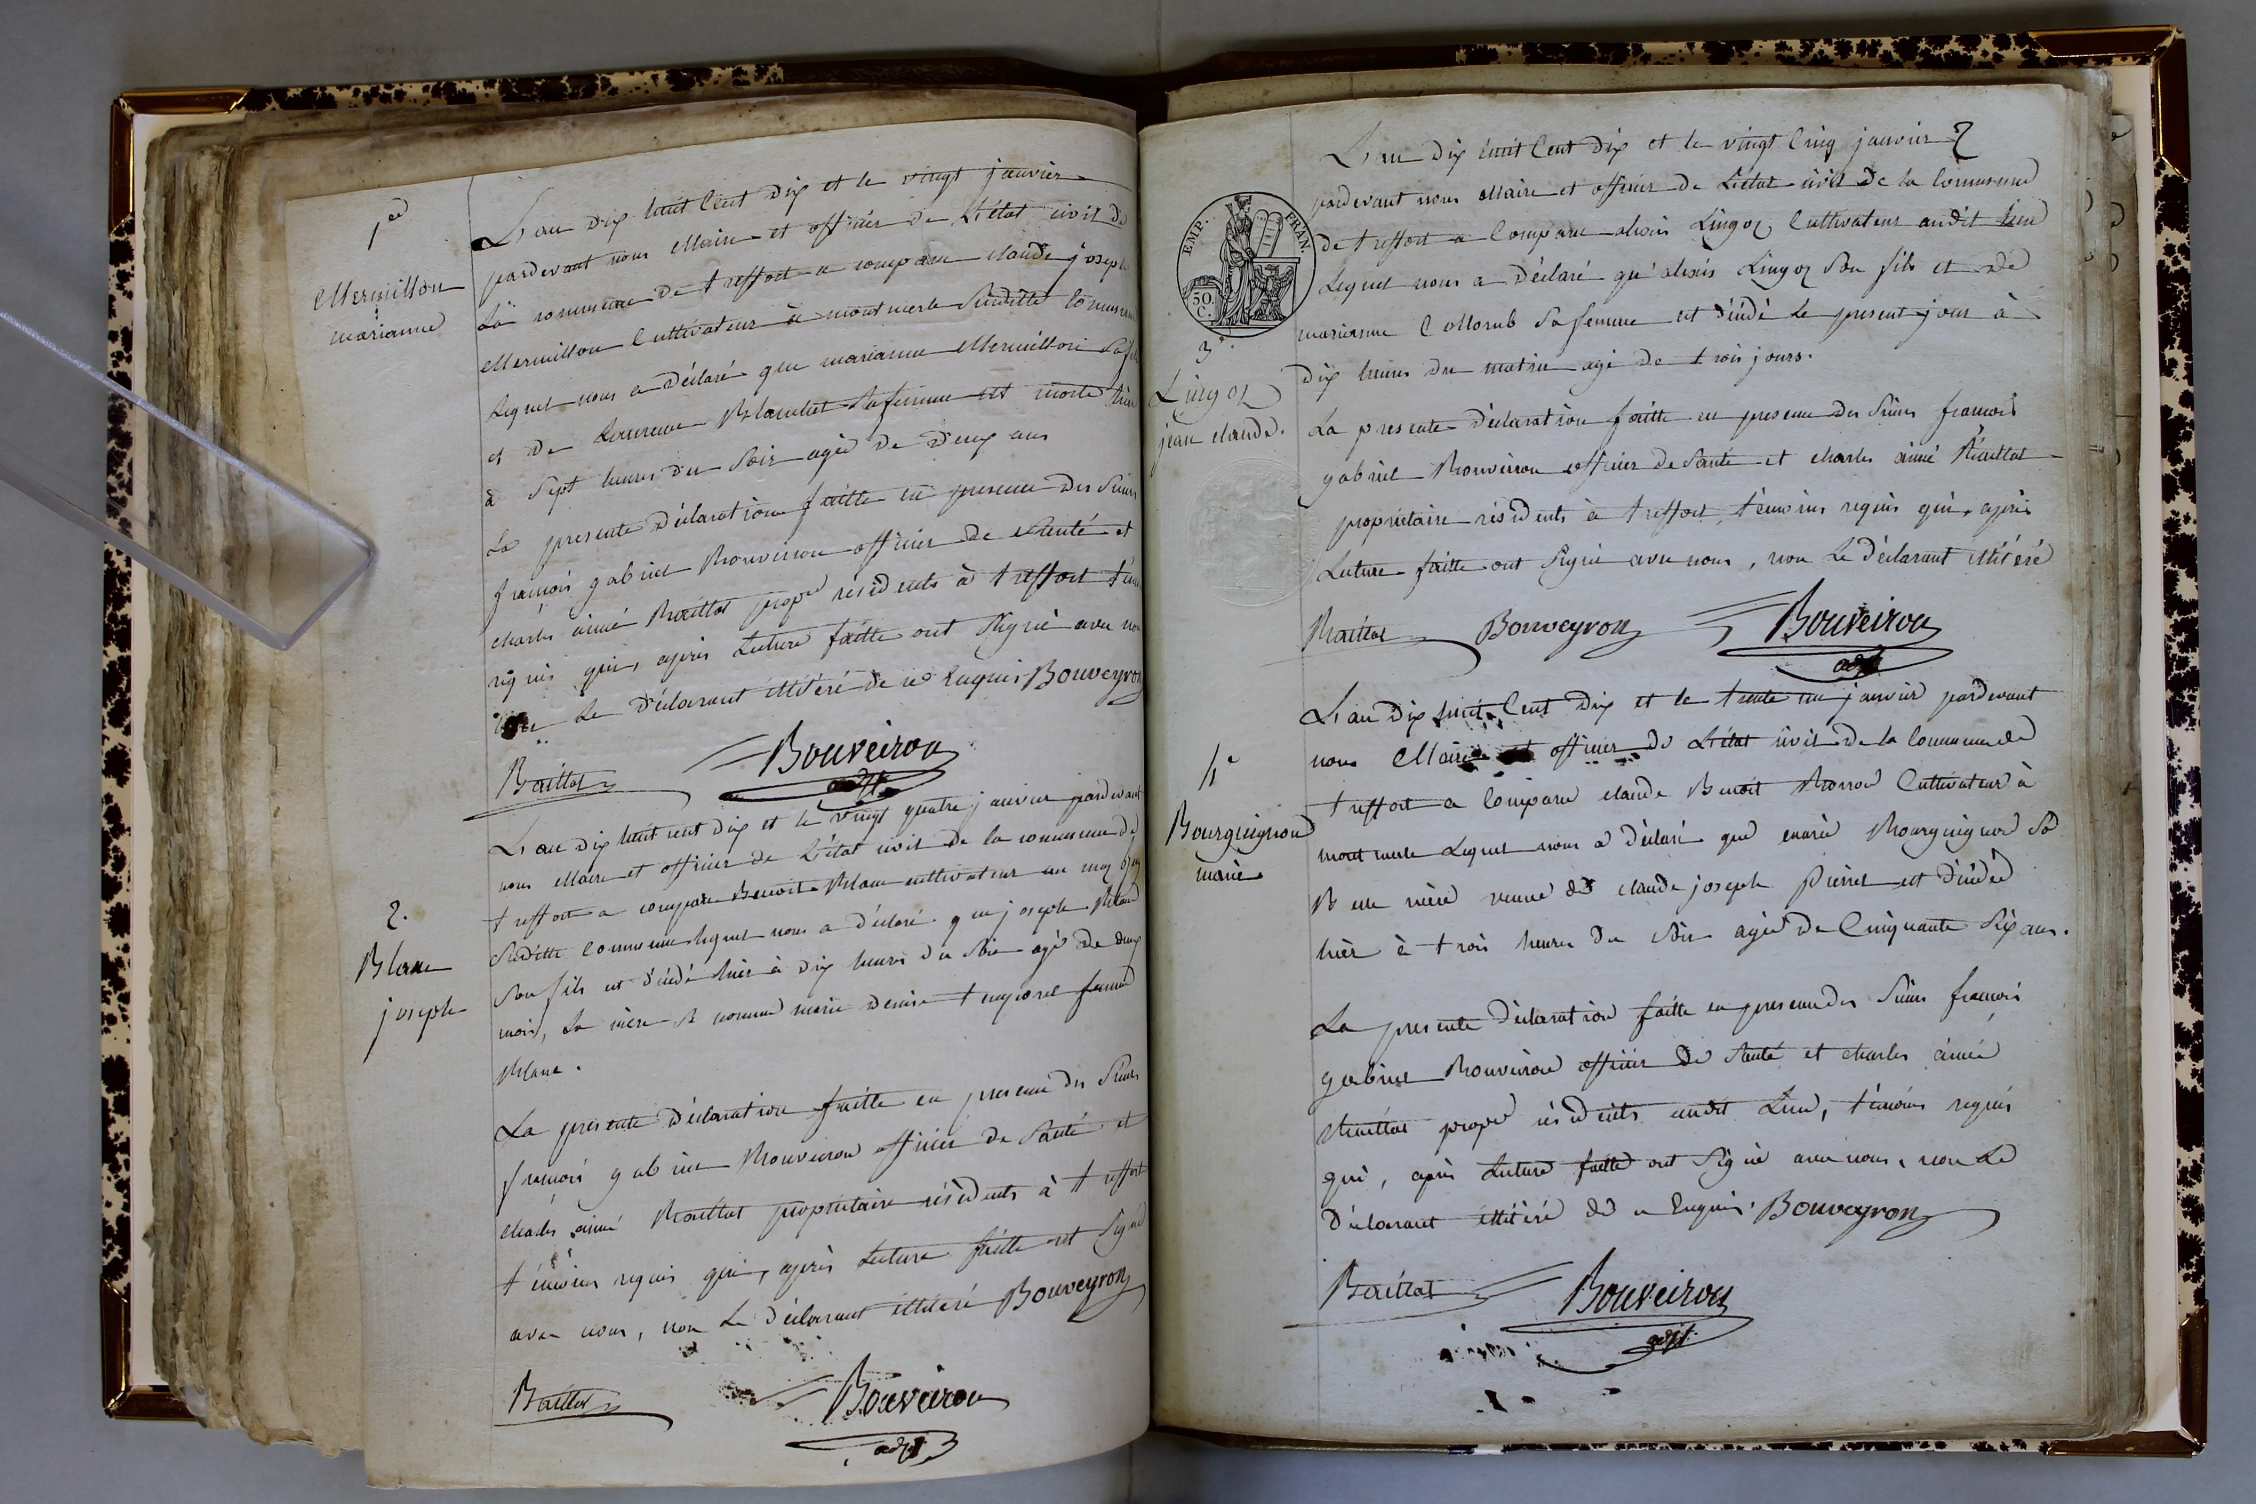 1ed
Mermillon
marianne
L'an dix huit Cent Dix et le vingt janvier
pardevant nous Maire et officier de L'état civil de
La commune de treffort a comparu claude joseph
Mermillon Cultivateur à montmerle Susditte Commune
Lequel nous a déclaré que marianne Mermillon Sa fille
et de Laurence Blanchet Sa femme est morte hier
à Sept heures du Soir agée de deux ans
La presente déclaration faitte en presence des Sieurs
françois gabriel Bouveiron officier de Santé et
charles aimé Baillat propre résidents à treffort
requis qui, après Lecture faitte ont Signé avec nous
non Le déclarant illitéré de ce Enquis Bouveyron
Baillat Bouveiron
adjt
2.
Blanc
joseph
L'an dix huit cent dix et le vingt quatre janvier pardevant
nous Maire et officier de L'état civil de la commune de
treffort a comparu Benoit Blanc cultivateur au
Susditte Commune lequel nous a déclaré que joseph Blanc
Son fils est décédé hier à dix heures du Soir agé de deux
mois, La mère Se nomme marie denise femme
Blanc.
La presente déclaration faitte en presence des Sieurs
françois gabriel Bouveiron officier de Santé et
charles aimé Baillat propriétaire résidents à treffort
témoins requis qui, après Lecture faitte ont Signé
avec nous, non Le déclarant illitéré Bouveyron
Baillat Bouveiron
adjt
EMP. FRAN.
50.
C.
3e.
Lingoz
jean claude.
L'an dix huit Cent dix et le vingt Cinq janvier
pardevant nous Maire et officier de L'état civil de la Commune
de treffort a Comparu alexis Lingoz Cultivateur audit Lieu
Lequel nous a déclaré qu'alexis Lingoz Son fils et de
marianne Collomb Sa femme est décédé Le present jour à
dix heures du matin agé de trois jours.
La presente déclaration faitte en presence des Sieurs francois
gabriel Bouveiron officier de Santé et charles aimé Baillat
propriétaire résidents à treffort, témoins requis qui, après
Lecture faitte ont Signé avec nous, non Le déclarant illitéré
Baillat Bouveyron Bouveiron
adjt
4e
Bourguignon
marie
L'an dix huit Cent dix et le trente un janvier pardevant
nous Maire et officier de L'état civil de la Commune de
treffort a Comparu claude Benoit Cultivateur à
montmerle Lequel nous a déclaré que marie Bourguignon Sa
Belle mère veuve de claude joseph Pierret est décédée
hier à trois heures du Soir agée de Cinquante Six ans.
La presente déclaration faitte en presence des Sieurs francois
gabriel Bouveiron officier de Santé et charles aimé
Baillat propre résidents audit Lieu, témoins requis
qui, après Lecture faitte ont Signé avec nous, non Le
déclarant illitéré de ce Enquis. Bouveyron
Baillat Bouveiron
adjt